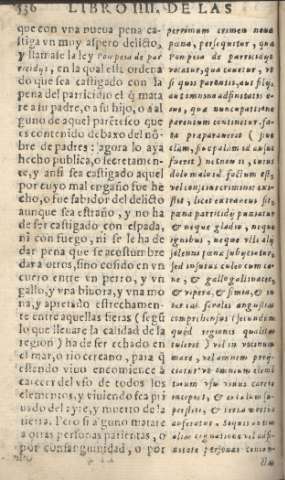 536 LIBRO IIII. DE LAS
que con vna nueua pena ca-
stiga vn muy aspero delicto,
y llamase la ley Pompeia de par-
ricidijs, en la qual està ordena
do que sea castigado con la
pena del parricidio el q̃ mata
re a su padre, o a su hijo, o a al
guno de aquel parẽtesco que
es contenido debaxo del nõ-
bre de padres: agora lo aya
hecho publica, o secretamen-
te, y ansi sea castigado aquel
por cuyo mal engaño fue he
cho, o fue sabidor del delicto
aunque sea estraño, y no ha
de ser castigado con espada,
ni con fuego, ni se le ha de
dar pena que se acostumbre
dar a otros, sino cosido en vn
cuero entre vn perro, y vn
gallo, y vna biuora, y vna mo
na, y apretado estrechamen-
te entre aquellas fieras (segũ
lo que lleuare la calidad de la
region) ha de ser echado en
el mar, o rio cercano, para q̃
estando viuo encomience à
carecer del vso de todos los
elementos, y viuiendo sea pri
uado del ayre, y muerto de la
tierra. Pero si alguno matare
a otras personas parientas, o
por consanguinidad, o por
perrimum crimen noua
pœna, persequitur, quæ
Pompeia de parricidijs
vocatur, qua cauetur, vt
si quis parentis, aut filij,
aut omnino adfinitatis
eius, quæ nuncupatione
parentum continetur, fa-
ta præparauerit (siue
clam, siue palam id ausus
fuerit) necnon is, cuius
dolo malo id factum est,
vel conscius criminis exi-
stit, licet extraneus sit,
pœna parricidij puniatur
& neque gladio, neque
ignibus, neque vlli alij
solenni pœnæ subiugetur,
sed insutus culeo cum ca-
ne, & gallo gallinaceo,
& vipera, & simia, & in-
ter eas ferales angustias
comprehensus (secundum
quod regionis qualitas
tulerit) vel in vicinum
mare, vel amnem proij-
ciatur: vt omnium elemẽ
torum vsu viuus carere
incipiat, & ei cœlum su-
perstiti, & terra mortuo
auferatur. Siquis autem
alias cognatione vel adfi-
nitate personas coniun-